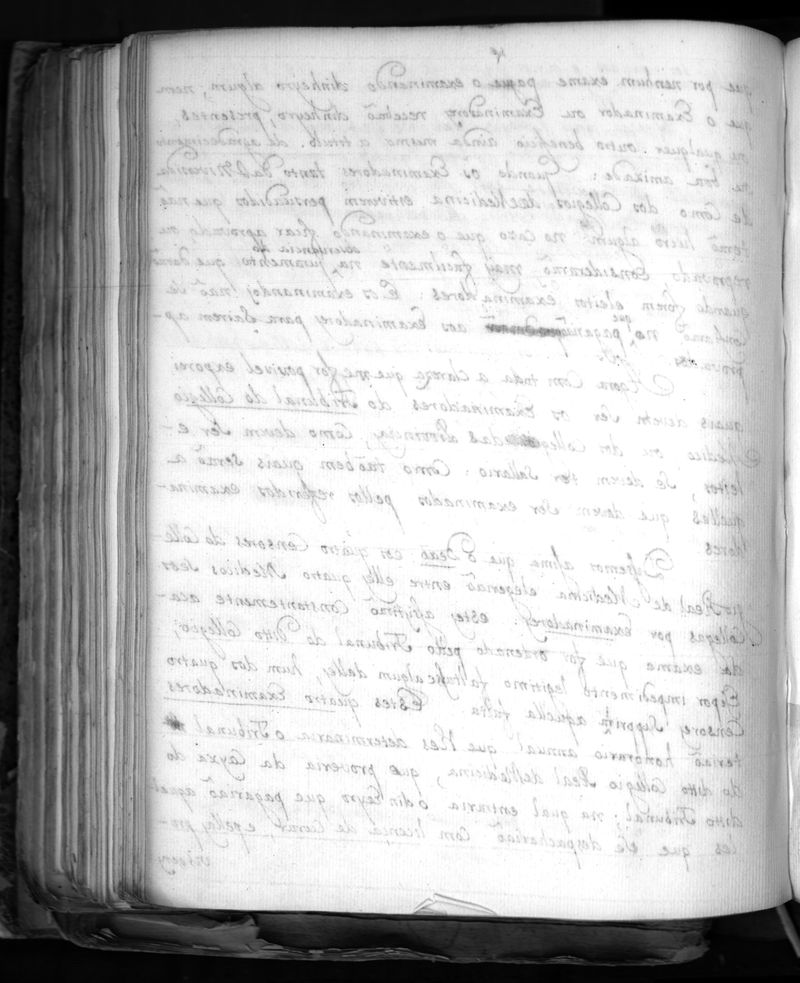 que por nenhum exame pague o examinando dinheyro algum, nem
que o Examinador ou Examinadores recebaõ dinheyro, presentes,
ou qualquer outro beneficio ainda mesmo a titulo de agradecimento
ou boa amizade. Quando os Examinadores tanto da
de como dos Collegios de Medicina estiverem persuadidos que naõ
temõ lucro algum no cazo que o examinando ficar aprovado ou
reprovado consideraraõ mays facilmente na consciencia do juramento, que deraõ
quando forem eleitos examinadores. E os examinandos naõ se
que no, pagaraõ aos Examinadores para sairem ap-
provados.
Agora com toda a clareza que me for posivel exporei
quais devem ser os Examinadores do Tribunal do Collegio
Medico ou dos Collegios das Provincias, como devem ser e-
leitos, se devem ter sallario. Como taõbem quais seraõ a-
quelles que devem ser examinados pellos referidos examina-
dores.
Dissemos asima que o Deaõ cos quatro Censores do Colle-
gio Real de Medicina elegeraõ entre elles quatro Medicos seos
Collegas por examinadores: estes assistiraõ constantemente a ca-
da exame que for ordenado pello Tribunal do ditto Collegio,
E por impedimento legitimo faltase algum delles, hum dos quatro
Censores suppriria aquella falta. Estes quatro Examinadores
teriaõ honorario annual que lles determinaria o Tribunal
do ditto Collegio Real de Medicina, que proveria da Cayxa do
ditto Tribunal; na qual entraria o dinheyro que pagariaõ aquel-
les que elle despachariaõ com licença de Curar, e pellos pro-
visoens